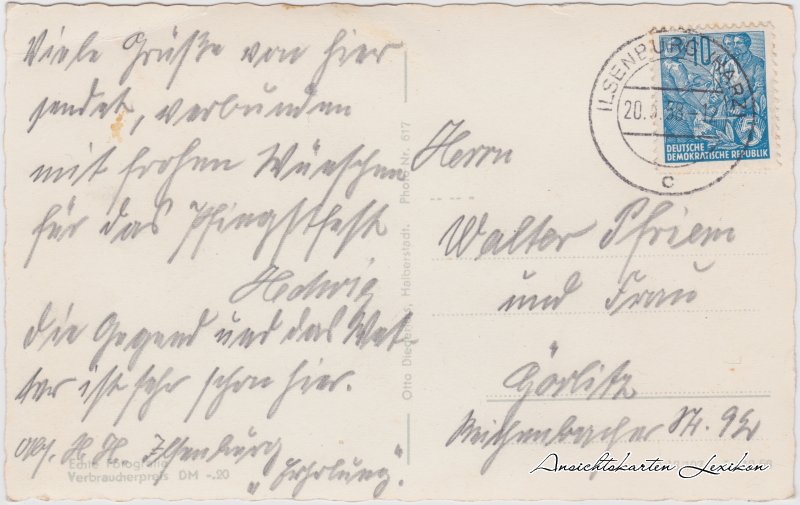 Viele Grüße von hier
sendet, verbunden
mit frohen Wünschen
für das Pfingstfest
Hedwig
Die Gegend und das Wet-
ter ist sehr schön hier.
Abs. H. H., Ilsenburg
"Erholung".
Echte Fotografie
Verbraucherpreis DM -.20
Otto Halberstadt. Photo-Nr. 617
ILSENBURG (HARZ)
20.5.
c
10
DEUTSCHE
DEMOKRATISCHE REPUBLIK
Herrn
Walter Pfriem
und Frau
Görlitz
Reichenbacher Str.
Ansichtskarten Lexikon